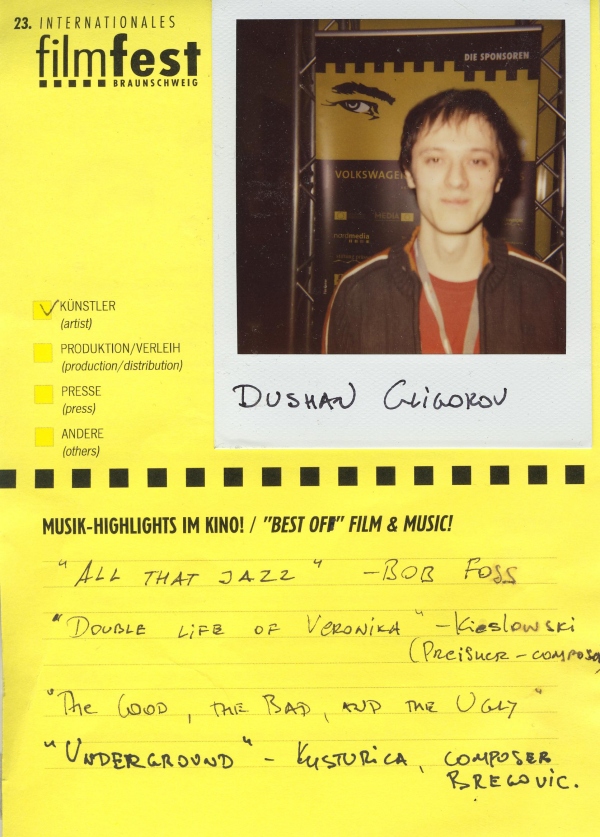 23. INTERNATIONALES
filmfest
BRAUNSCHWEIG
DIE SPONSOREN
VOLKSWAGEN
MEDIA
nordmedia
KÜNSTLER
(artist)
PRODUKTION/VERLEIH
(production/distribution)
PRESSE
(press)
ANDERE
(others)
DUSHAN GLIGOROV
MUSIK-HIGHLIGHTS IM KINO! / "BEST OF" FILM & MUSIC!
"ALL THAT JAZZ" - BOB FOSS
"DOUBLE LIFE OF VERONIKA" - Kieslowski
(PREISNER - COMPOSER
"The GOOD, THE BAD, AND THE UGLY"
"UNDERGROUND" - KUSTURICA, COMPOSER
BREGOVIC.